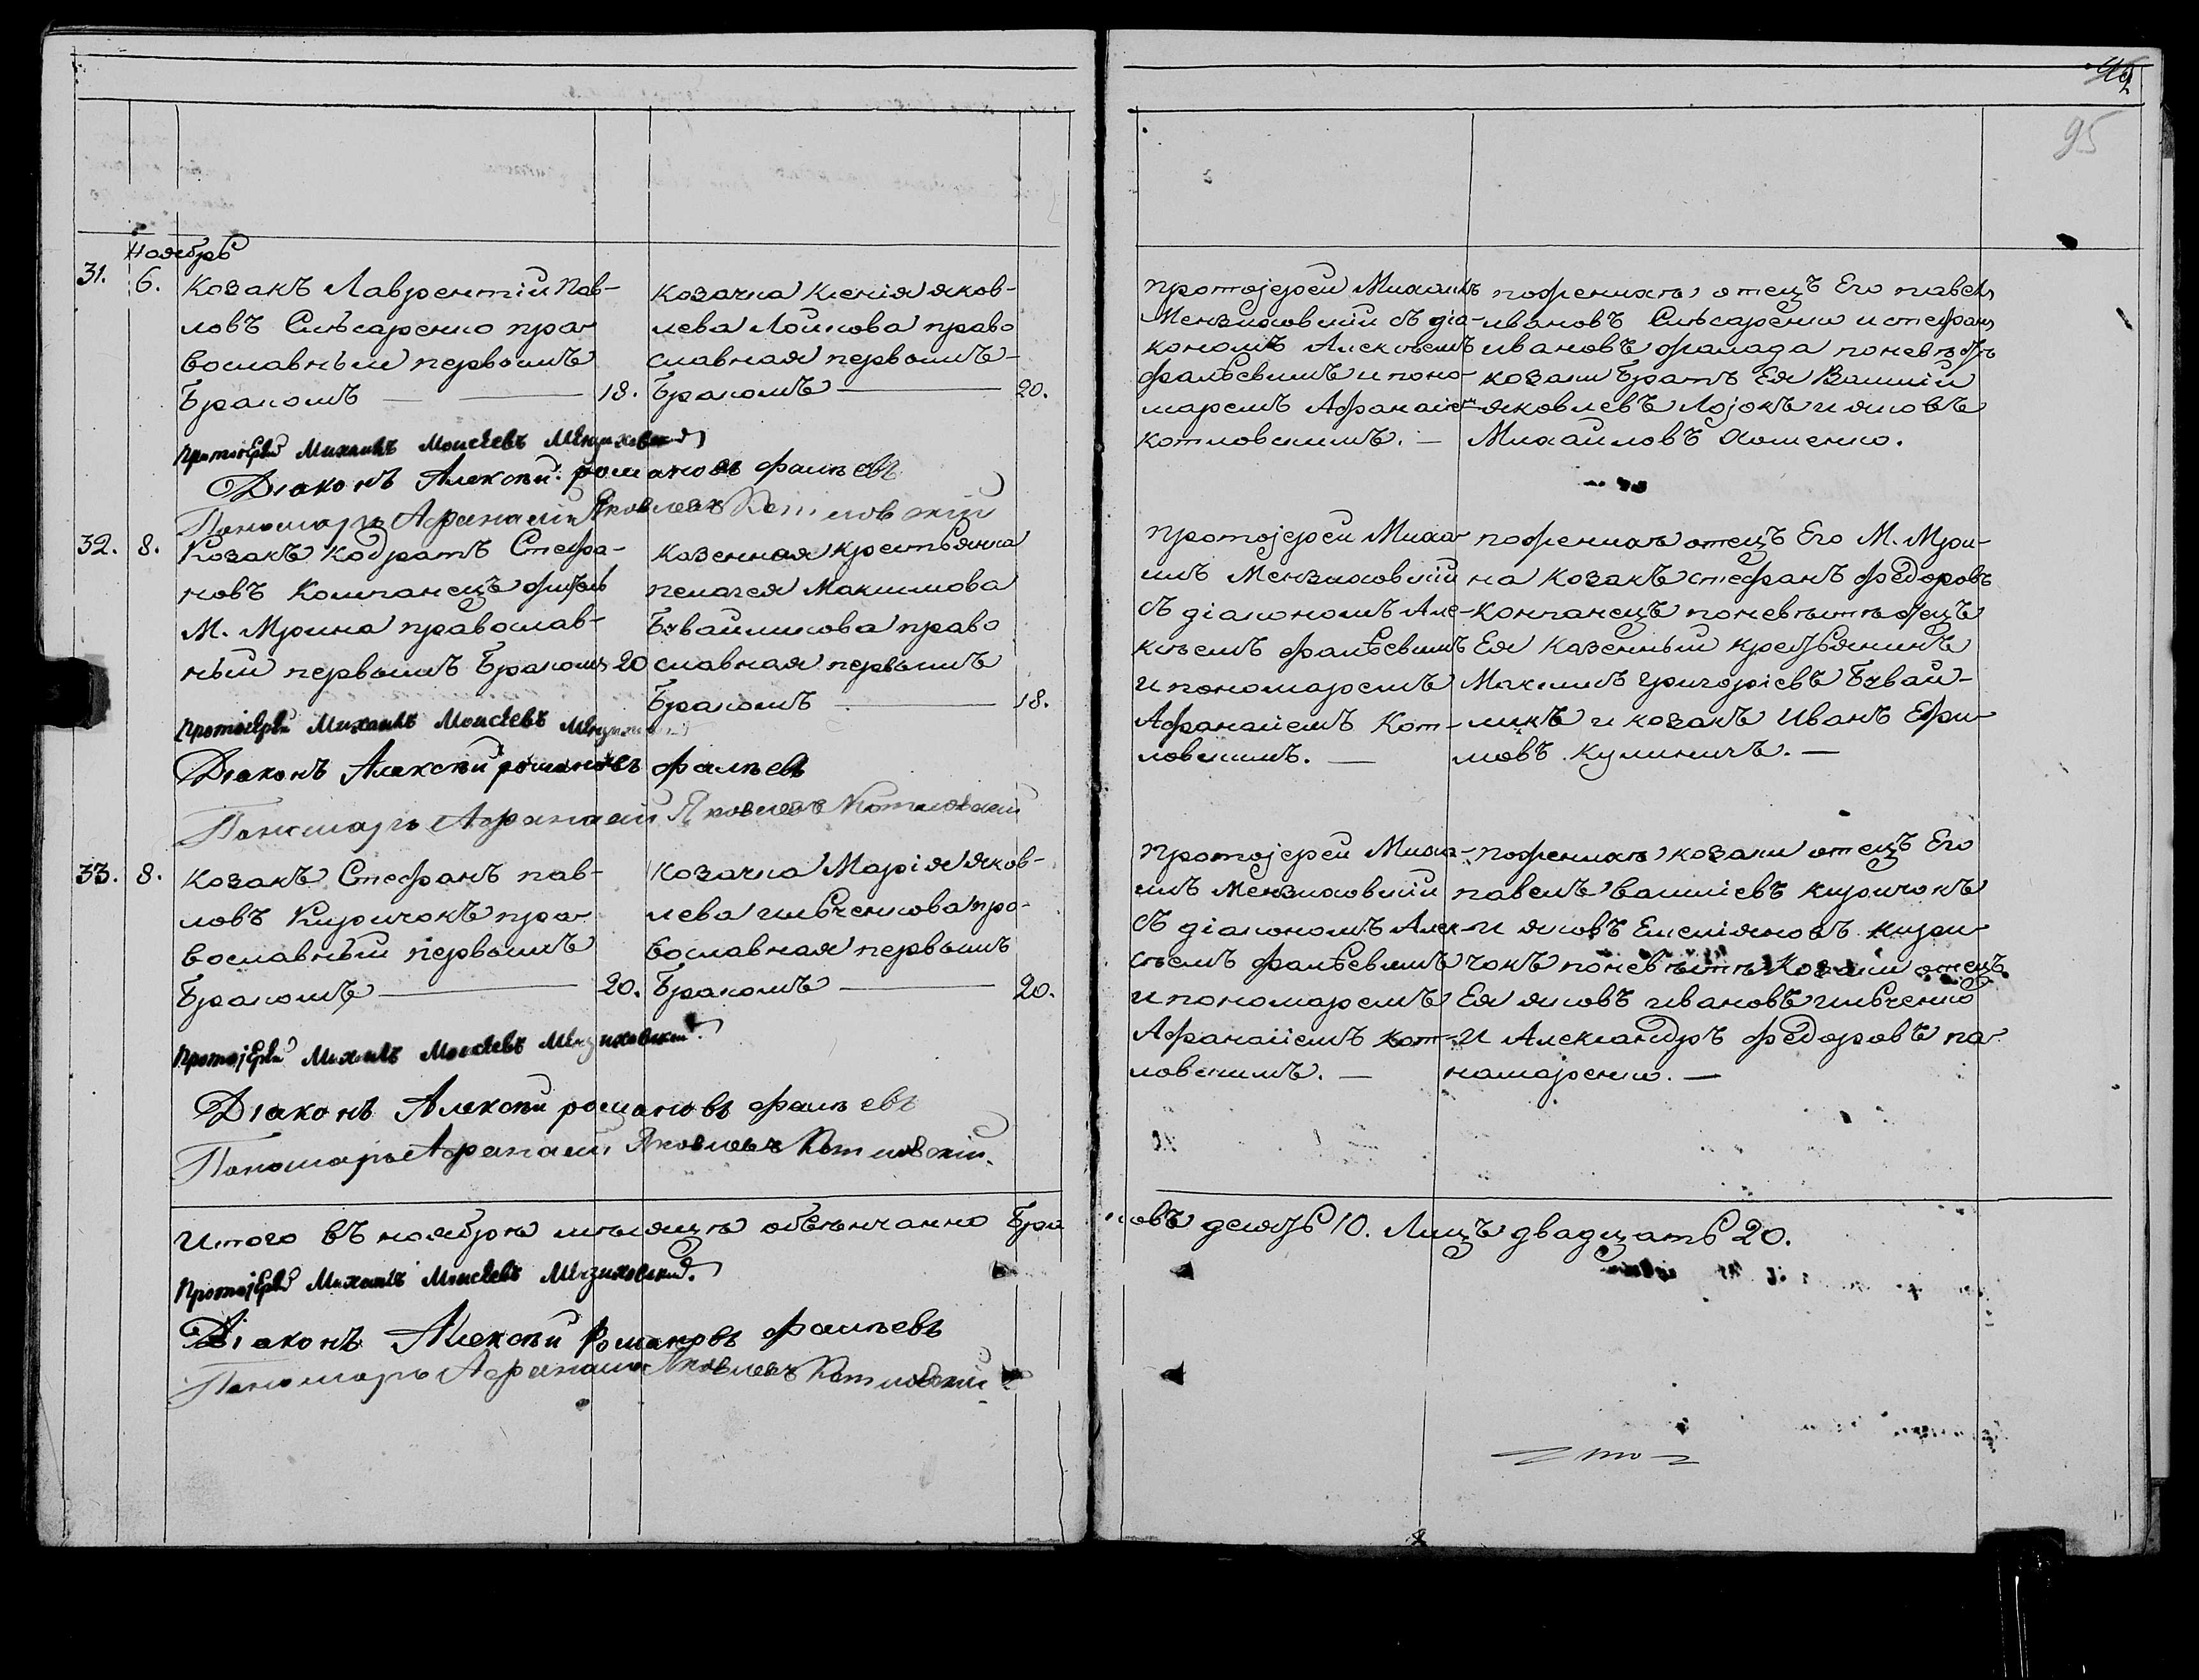 42
95
Ноябрь
31. 6. Козакъ Лаврентій Пав-
ловъ Слѣсаренко пра-
вославный первымъ
бракомъ — 18.
Козачка Ксенія Яков-
лева Лойкова право
славная первымъ
бракомъ — 20.
Протоіерей Михаилъ
Мензиховскій съ діа-
кономъ Алексѣемъ
Фалѣевымъ и поно-
маремъ Афанасіемъ
Котловскимъ. —
по женихѣ отецъ Его Павелъ
Ивановъ Слѣсаренко и Стефанъ
Ивановъ Фалада по невѣстѣ
козаки братъ Ея Василій
Яковлевъ Лојокъ и Яковъ
Михайловъ Хоменко.
Протоіерей Михаилъ Моисеевъ Мензиховскій
Діаконъ Алексѣй Романовъ Фалѣевъ
Пономарь Афанасій Яковлевъ Котловскій
32. 8. Козакъ Кодратъ Стефа-
новъ Компанецъ
М. Мрина православ-
ный первымъ бракомъ 20
Казенная крестьянка
Пелагея Максимова
Бувайликова право
славная первымъ
бракомъ — 18.
Протоіерей Миха-
илъ Мензиховскій
съ діакономъ Але-
ксѣемъ Фалѣевымъ
и пономаремъ
Афанасіемъ Кот-
ловскимъ. —
по женихѣ отецъ Его М. Мри-
на козакъ Стефанъ Федоровъ
Компанецъ по невѣстѣ отецъ
Ея казенный крестьянинъ
Максимъ Григоріевъ Бувай-
ликъ и козакъ Иванъ Ефи-
мовъ Кулиничъ. —
Протоіерей Михаилъ Моисеевъ
Діаконъ Алексѣй Романовъ Фалѣевъ
Пономарь Афанасій Яковлевъ Котловскій
33. 8. Козакъ Стефанъ Пав-
ловъ Киричокъ пра-
вославный первымъ
бракомъ — 20.
Козачка Марія Яков-
лева Ильченкова пра-
вославная первымъ
бракомъ — 20.
Протоіерей Миха-
илъ Мензиховскій
съ діакономъ Алек-
сѣемъ Фалѣевымъ
и пономаремъ
Афанасіемъ Кот-
ловскимъ. —
по женихѣ козаки отецъ Его
Павелъ Василіевъ Киричокъ
и Яковъ Емеліяновъ Кири-
чокъ по невѣстѣ козаки отецъ
Ея Яковъ Ивановъ Ильченко
и Александръ Федоровъ По-
номаренко. —
Протоіерей Михаилъ Моисеевъ Мензиховскій
Діаконъ Алексѣй Романовъ Фалѣевъ
Пономарь Афанасій Яковлевъ Котловскій.
Итого въ ноябрѣ мѣсяцѣ обвѣнчанно браковъ десять 10. Лицъ двадцать 20.
Протоіерей Михаилъ Моисеевъ Мензиховскій.
Діаконъ Алексѣй Романовъ Фалѣевъ
Пономарь Афанасій Яковлевъ Котловскій